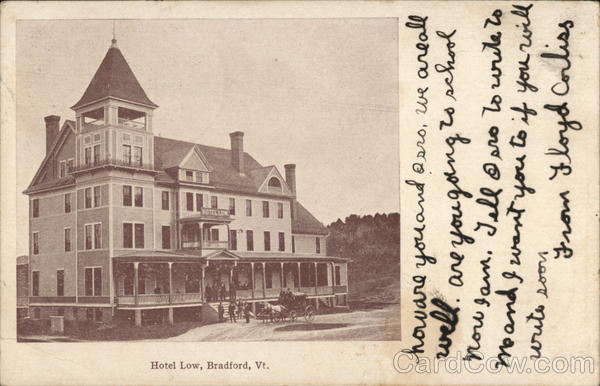 HOTEL LOW
Hotel Low, Bradford, Vt.
how are you and Osro, we are all
well. are you going to school
now I am. Tell Osro to write to
me and I want you to if you will
write soon
From Floyd Corliss
CardCow.com